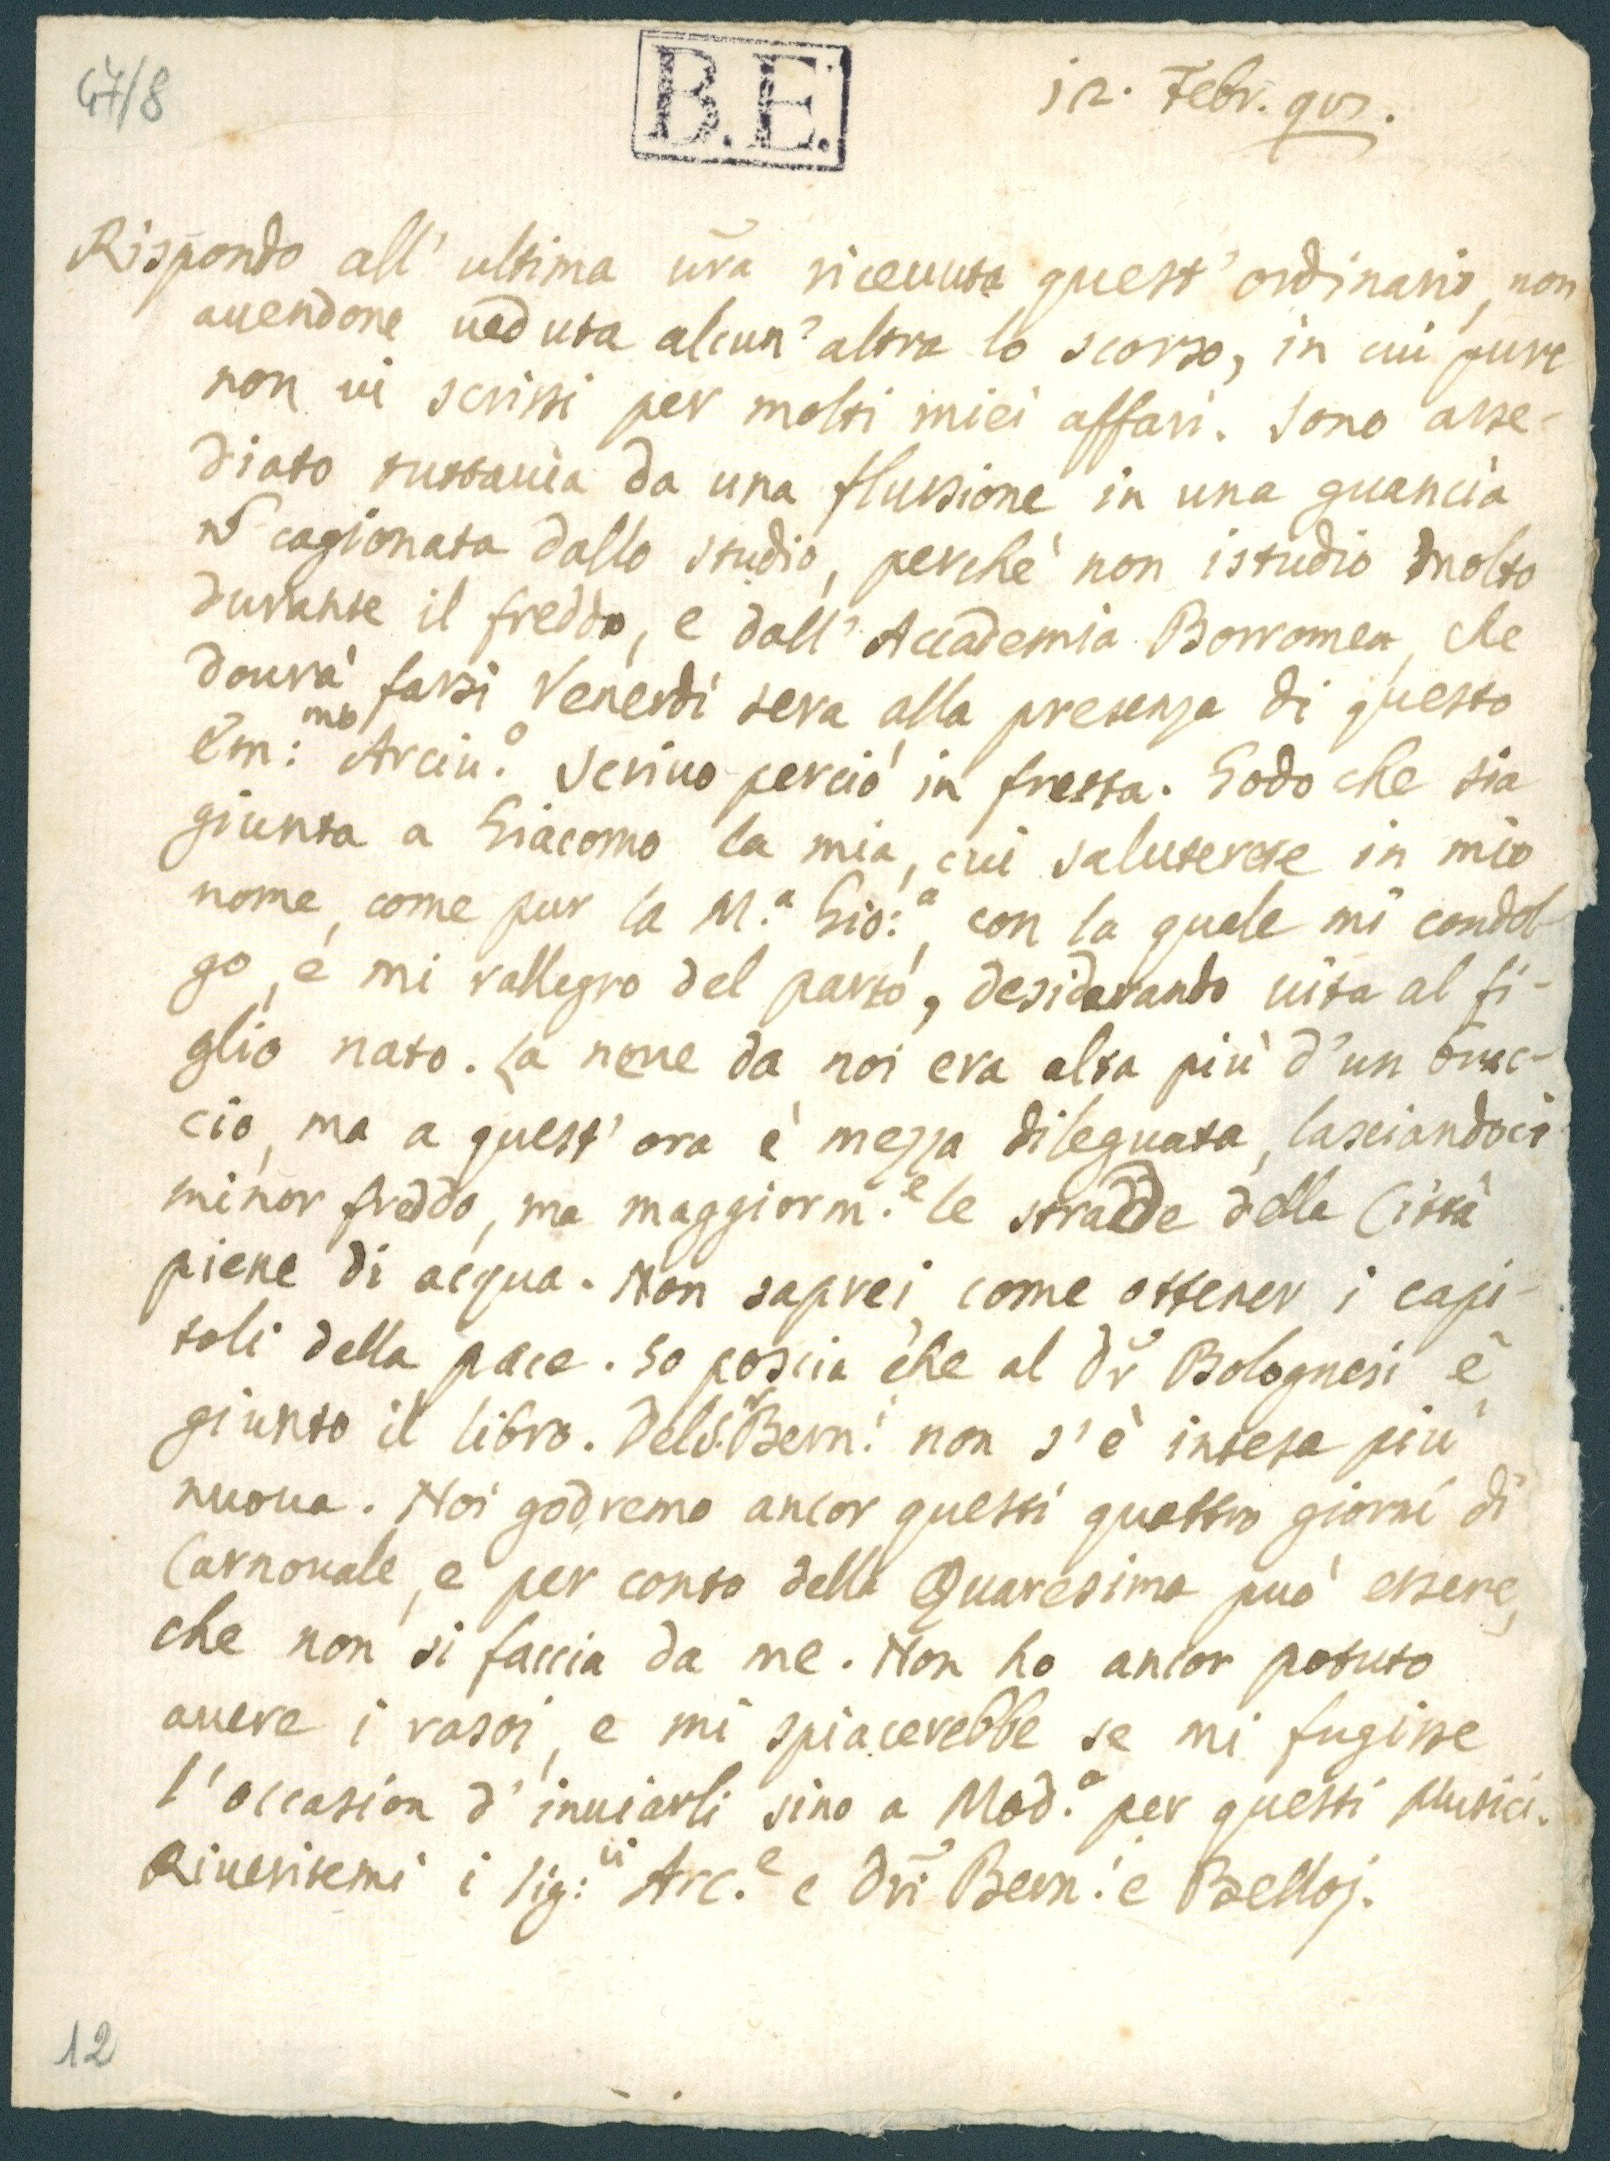 47/8
B.E.
12. Febr. 98.
Rispondo all' ultima vr̃a riceuuta quest' ordinario, non
auendone ueduta alcun' altra lo scorso, in cui pure
non ui scrissi per molti miei affari. Sono asse-
diato tuttauia da una flussione in una guancia
nõ cagionata dallo studio, perche' non istudio molto
durante il freddo, e dall' Accademia Borromea, che
dourà farsi Venerdì sera alla presenza di questo
Em:mo Arciu.o Scriuo perciò in fretta. Godo che sia
giunta a Giacomo la mia, cui saluterete in mio
nome, come pur la M.a Gio:a, con la quale mi condol-
go, e mi rallegro del parto, desiderando uita al fi-
glio nato. La neue da noi era alta più d'un brac-
cio, ma a quest' ora è mezza dileguata, lasciandoci
minor freddo, ma maggiorm.e le stradde della Città
piene di acqua. Non saprei, come ottener i capi-
toli della pace. So poscia che al Dr̃ Bolognesi è
giunto il libro. Del S.r Bern.i non s'è intesa più
nuoua. Noi godremo ancor questi quattro giorni di
Carnouale, e per conto della Quaresima può essere,
che non si faccia da me. Non ho ancor potuto
auere i rasoi, e mi spiacerebbe se mi fugisse
l'occasion d'inuiarli sino a Mod.a per questi Musici.
Riueritemi i Sig:ri Arc.e e Dr̃i Bern.i e Belloj.
12